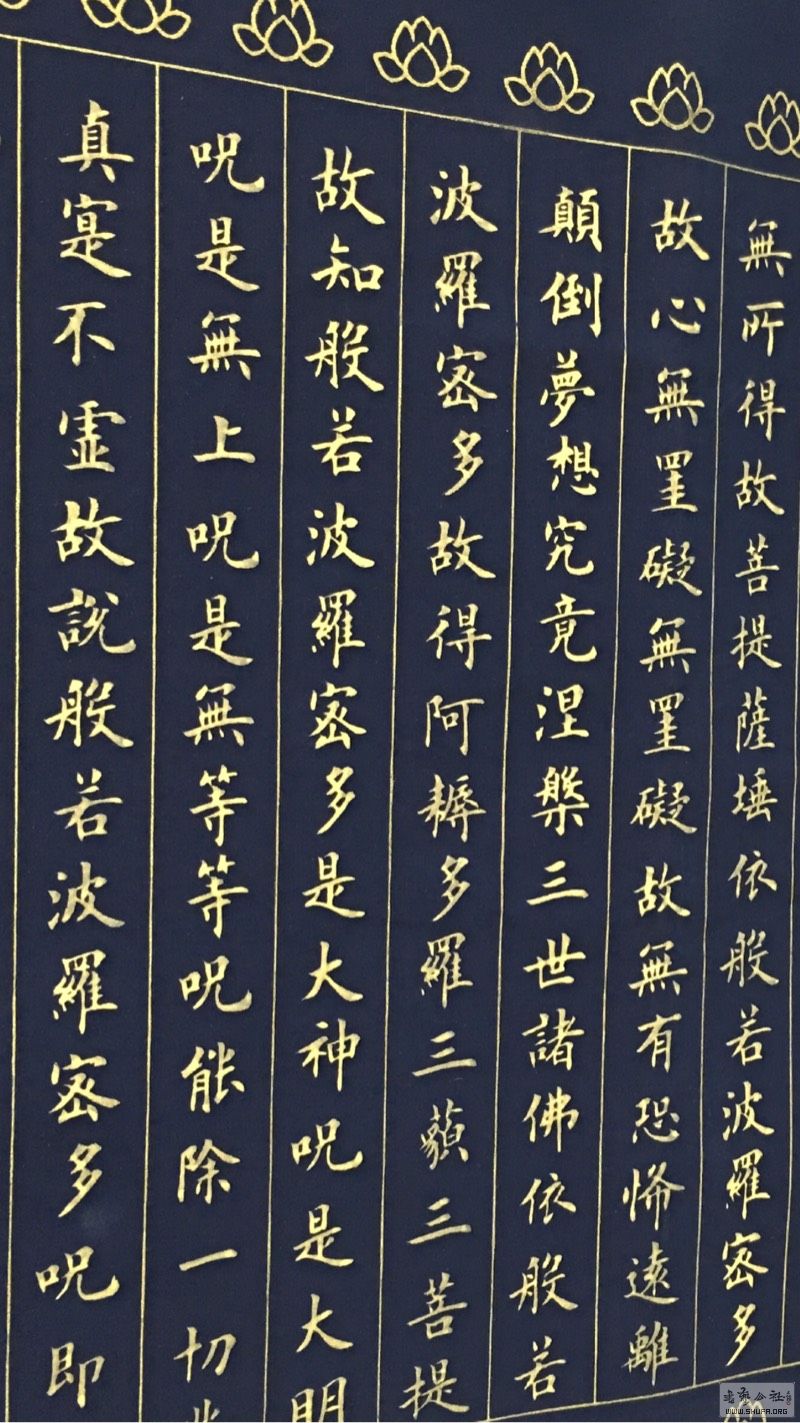 無所得故菩提薩埵依般若波羅密多
故心無罣礙無罣礙故無有恐怖遠離
顛倒夢想究竟涅槃三世諸佛依般若
波羅密多故得阿耨多羅三藐三菩提
故知般若波羅密多是大神呪是大明
呪是無上呪是無等等呪能除一切
真寔不虛故說般若波羅密多呪即
WWW.SHUFA.ORG